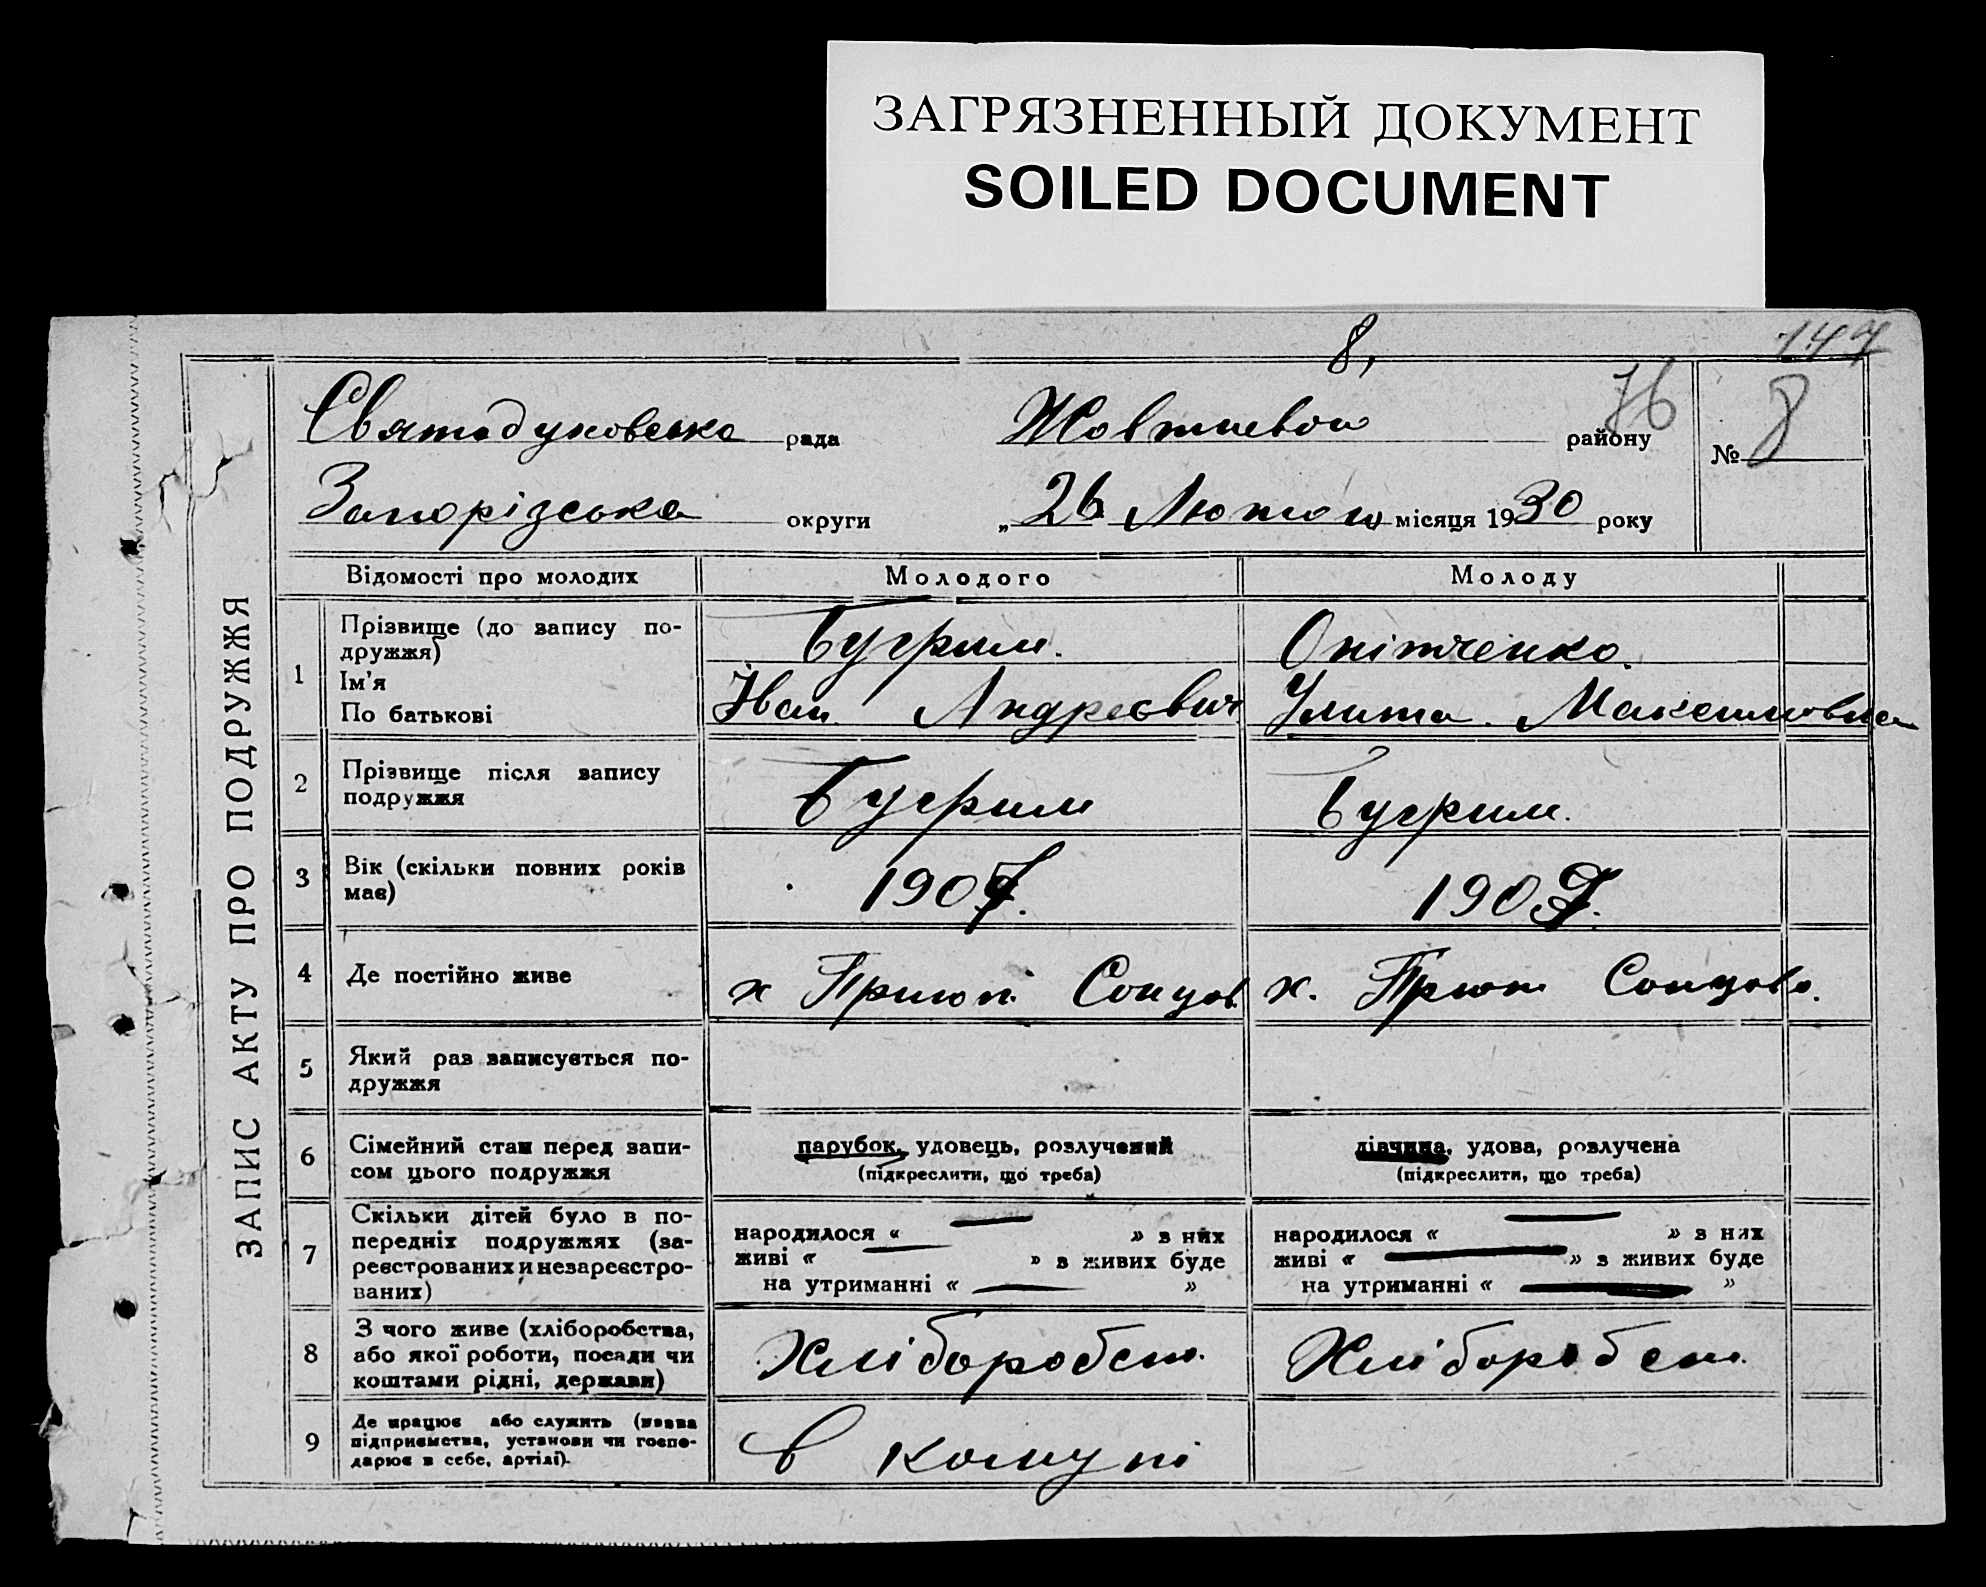 ЗАГРЯЗНЕННЫЙ ДОКУМЕНТ
SOILED DOCUMENT
8,
147
76
Святодуховська рада Жовтневого району № 8
Запорізська округи „ 26 Лютого місяця 1930 року
ЗАПИС АКТУ ПРО ПОДРУЖЖЯ
Відомості про молодих Молодого Молоду
1 Прізвище (до запису по-
дружжя) Бугрим. Опітченко.
Ім'я
По батькові Іван Андреєвич Улита Максимовна
2 Прізвище після запису
подружжя Бугрим Бугрим.
3 Вік (скільки повних років
має) 190 190
4 Де постійно живе х Приют Сонцов. х. Приют Сонцово.
5 Який раз записується по-
дружжя
6 Сімейний стан перед запи-
сом цього подружжя парубок, удовець, розлучений дівчина, удова, розлучена
(підкреслити, що треба) (підкреслити, що треба)
7 Скільки дітей було в по-
передніх подружжях (за-
реєстрованих и незареєстро-
ваних)
народилося « » з них народилося « » з них
живі « » з живих буде живі « » з живих буде
на утриманні « » на утриманні « »
8 З чого живе (хліборобства,
або якої роботи, посади чи
коштами рідні, держави) Хліборобст. Хліборобст.
9 Де працює або служить (назва
підприємства, установи чи госпо-
дарює в себе, артілі). в комуні